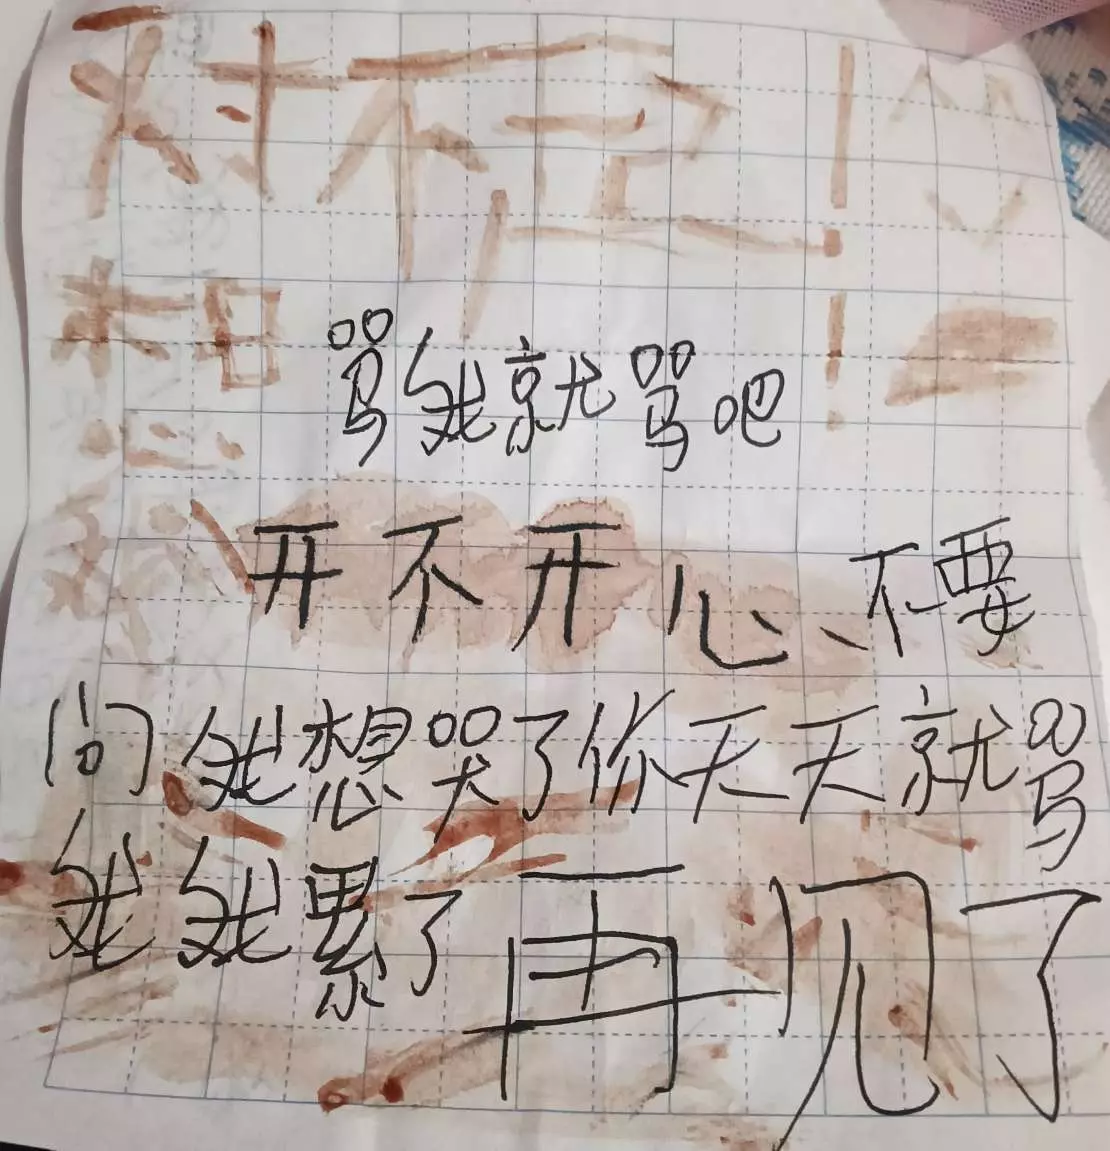 对不起!
想
骂我就骂吧
开不开心、不要
问我想哭了你天天就骂
我我累了再见了